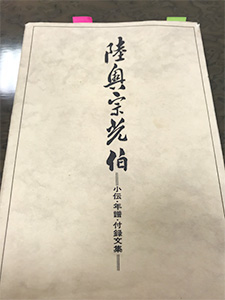 陸奥宗光伯
──小伝・年譜・付録文集──